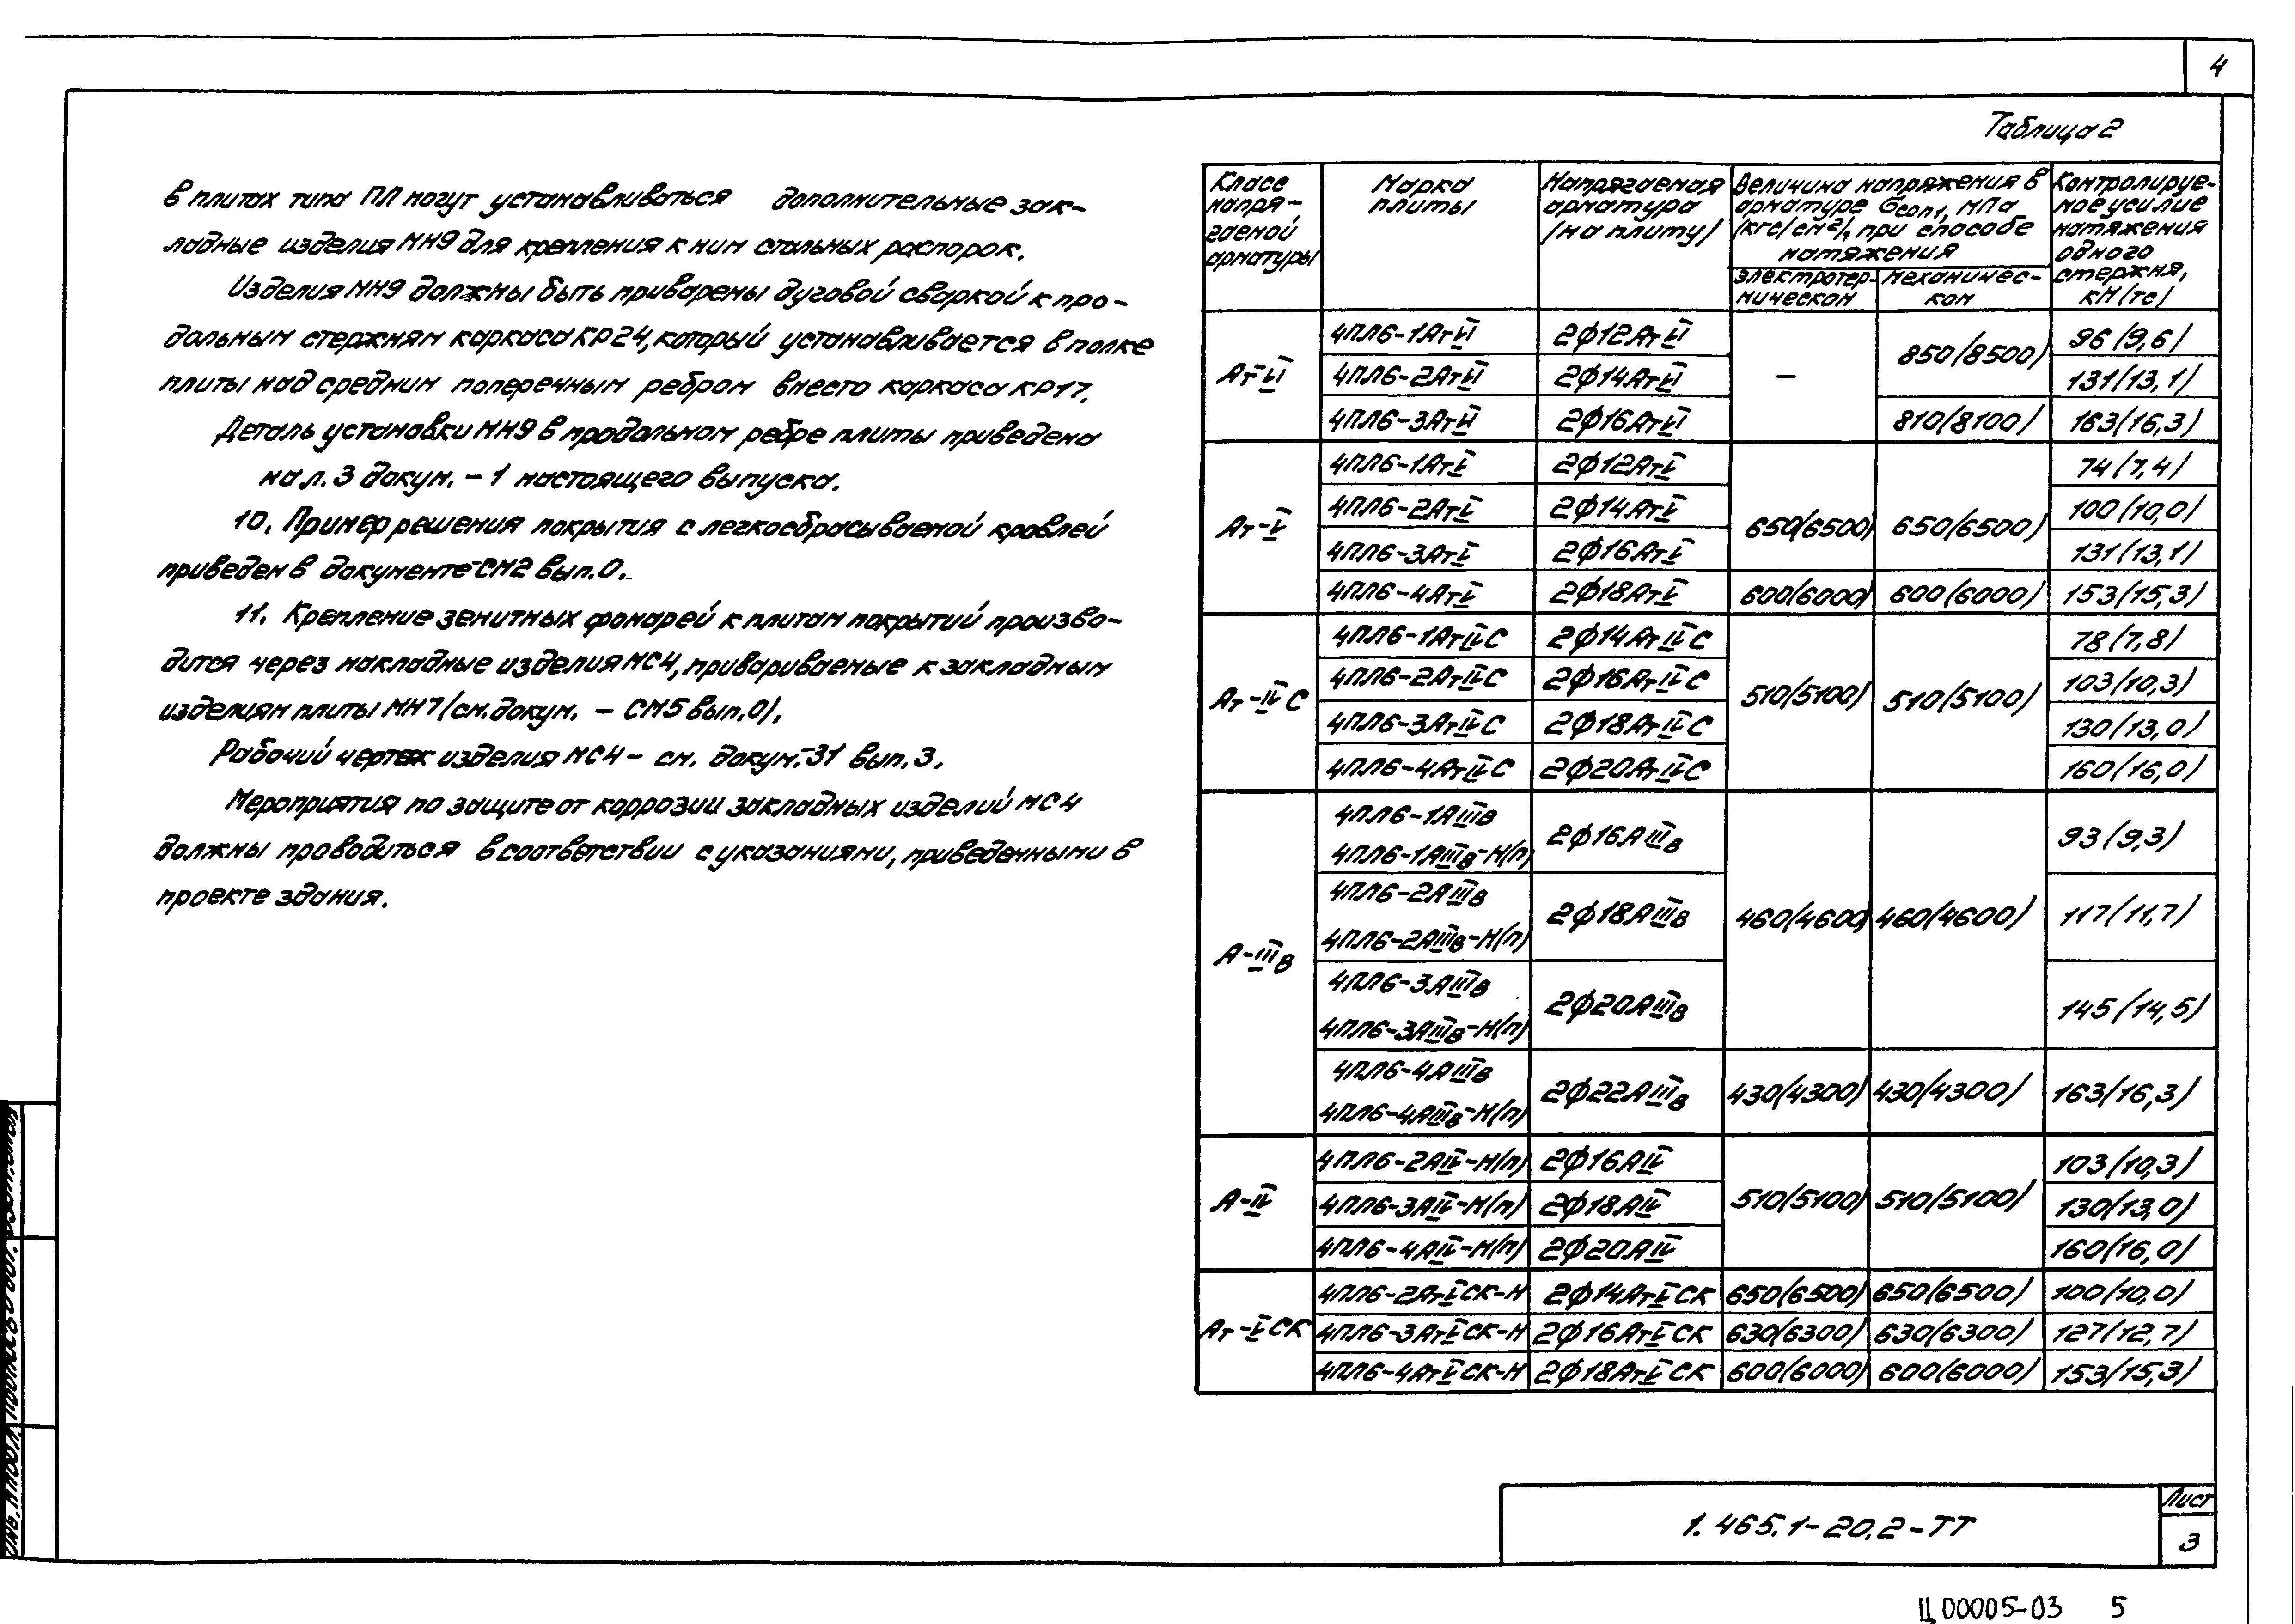 4
В плитах типа ПЛ могут устанавливаться дополнительные зак-
ладные изделия МН9 для крепления к ним стальных распорок.
Изделия МН9 должны быть приварены дуговой сваркой к про-
дольным стержням каркаса КР24, который устанавливается в полке
плиты над средним поперечным ребром вместо каркаса КР17.
Деталь установки МН9 в продольном ребре плиты приведена
на л. 3 докум. – 1 настоящего выпуска.
10. Пример решения покрытия с легкосбрасываемой кровлей
приведен в документе-СМ2 вып.0.
11. Крепление зенитных фонарей к плитам покрытий произво-
дится через накладные изделия МС4, привариваемые к закладным
изделиям плиты МН7 (см. докум. – СМ5 вып.0).
Рабочий чертеж изделия МС4 – см. докум.-31 вып. 3.
Мероприятия по защите от коррозии закладных изделий МС4
должны проводиться в соответствии с указаниями, приведенными в
проекте здания.
Таблица 2
Класс напря-гаемой арматуры | Марка плиты | Напрягаемая арматура (на плиту) | Величина напряжения в арматуре σcon1, МПа (кгс/см²), при способе натяжения | Контролируе-мое усилие натяжения одного стержня, кН (тс)
электротер-мическом | механичес-ком
Ат-VI | 4ПЛ6-1АтVI | 2ф12АтVI | – | 850(8500) | 96(9,6)
4ПЛ6-2АтVI | 2ф14АтVI | 131(13,1)
4ПЛ6-3АтVI | 2ф16АтVI | 810(8100) | 163(16,3)
Ат-V | 4ПЛ6-1АтV | 2ф12АтV | 650(6500) | 650(6500) | 74(7,4)
4ПЛ6-2АтV | 2ф14АтV | 100(10,0)
4ПЛ6-3АтV | 2ф16АтV | 131(13,1)
4ПЛ6-4АтV | 2ф18АтV | 600(6000) | 600(6000) | 153(15,3)
Ат-IVС | 4ПЛ6-1АтIVС | 2ф14АтIVС | 510(5100) | 510(5100) | 78(7,8)
4ПЛ6-2АтIVС | 2ф16АтIVС | 103(10,3)
4ПЛ6-3АтIVС | 2ф18АтIVС | 130(13,0)
4ПЛ6-4АтIVС | 2ф20АтIVС | 160(16,0)
А-IIIв | 4ПЛ6-1АIIIв | 2ф16АIIIв | 460(4600) | 460(4600) | 93(9,3)
4ПЛ6-1АIIIв-Н(п)
4ПЛ6-2АIIIв | 2ф18АIIIв | 117(11,7)
4ПЛ6-2АIIIв-Н(п)
4ПЛ6-3АIIIв | 2ф20АIIIв | 145(14,5)
4ПЛ6-3АIIIв-Н(п)
4ПЛ6-4АIIIв | 2ф22АIIIв | 430(4300) | 430(4300) | 163(16,3)
4ПЛ6-4АIIIв-Н(п)
А-IV | 4ПЛ6-2АIV-Н(п) | 2ф16АIV | 510(5100) | 510(5100) | 103(10,3)
4ПЛ6-3АIV-Н(п) | 2ф18АIV | 130(13,0)
4ПЛ6-4АIV-Н(п) | 2ф20АIV | 160(16,0)
Ат-VСК | 4ПЛ6-2АтVСК-Н | 2ф14АтVСК | 650(6500) | 650(6500) | 100(10,0)
4ПЛ6-3АтVСК-Н | 2ф16АтVСК | 630(6300) | 630(6300) | 127(12,7)
4ПЛ6-4АтVСК-Н | 2ф18АтVСК | 600(6000) | 600(6000) | 153(15,3)
1.465.1-20.2-ТТ
Лист
3
Ц00005-03 5